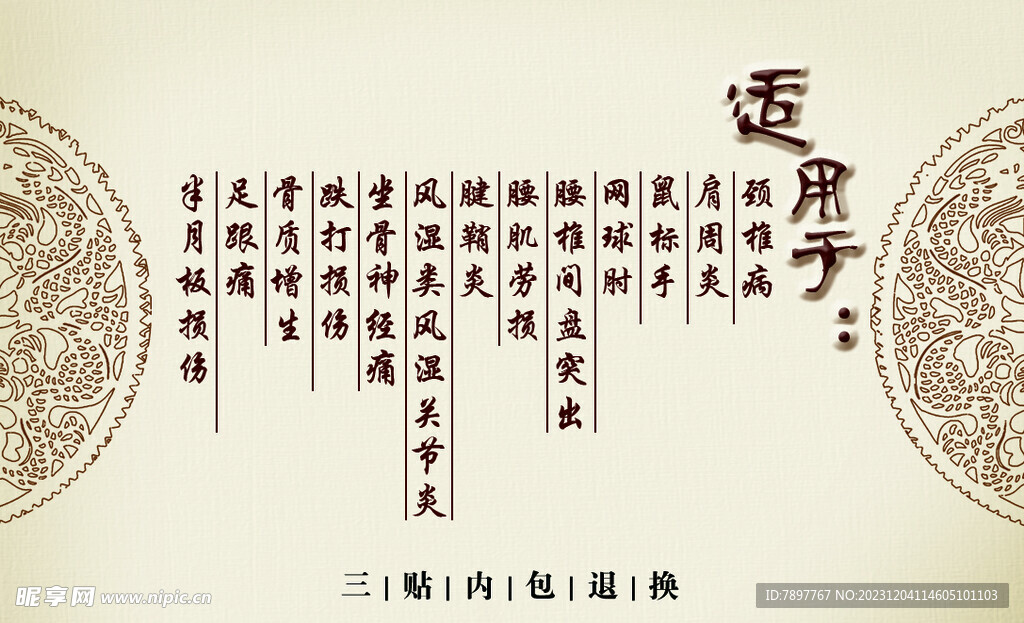 适用于：
颈椎病
肩周炎
鼠标手
网球肘
腰椎间盘突出
腰肌劳损
腱鞘炎
风湿类风湿关节炎
坐骨神经痛
跌打损伤
骨质增生
足跟痛
半月板损伤
三|贴|内|包|退|换
昵享网 www.nipic.cn
ID:7897767 NO:20231204114605101103